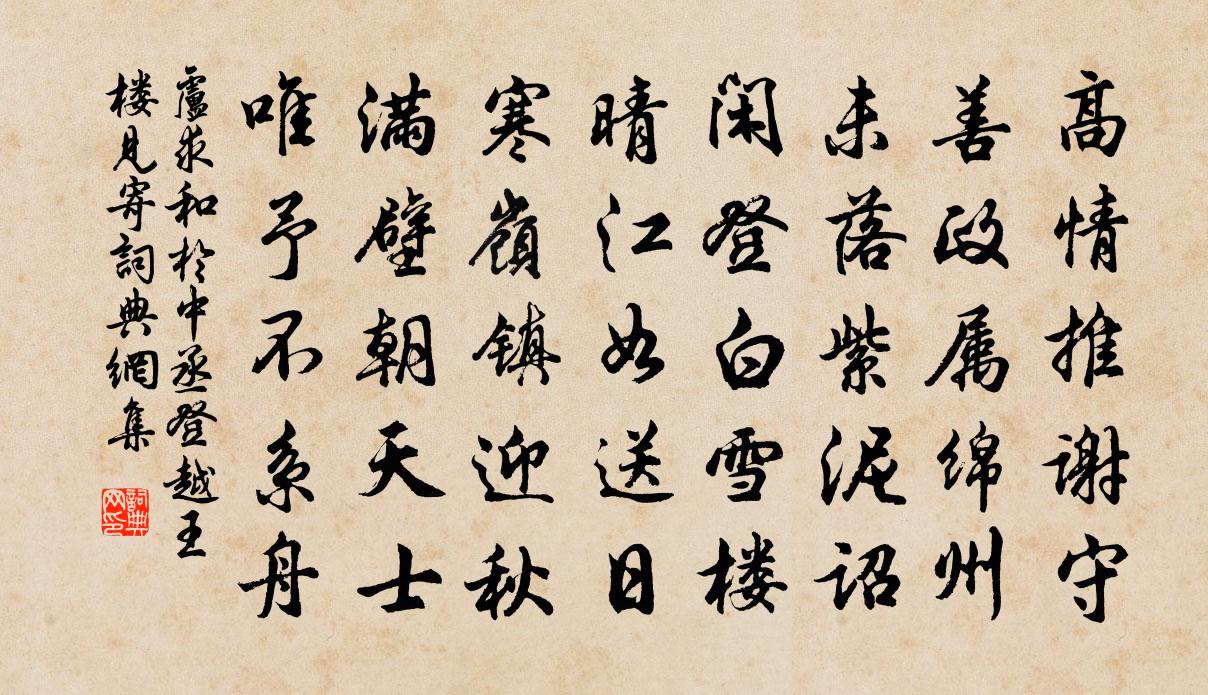 高情推谢守
善政属绵州
未落紫泥诏
闲登白雪楼
晴江如送日
寒嶺镇迎秋
满壁朝天士
唯予不系舟
盧求和於中丞登越王
楼见寄詞典網集
詞典
网印